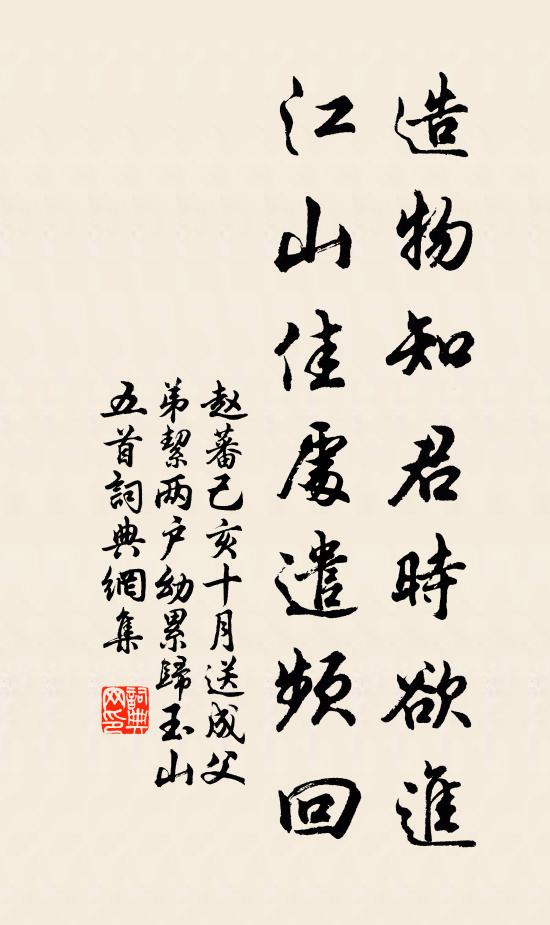 造物知君時欲進
江山佳處遣頻回
赵蕃己亥十月送成父
弟絜两户幼累歸玉山
五首詞典網集
詞典网印